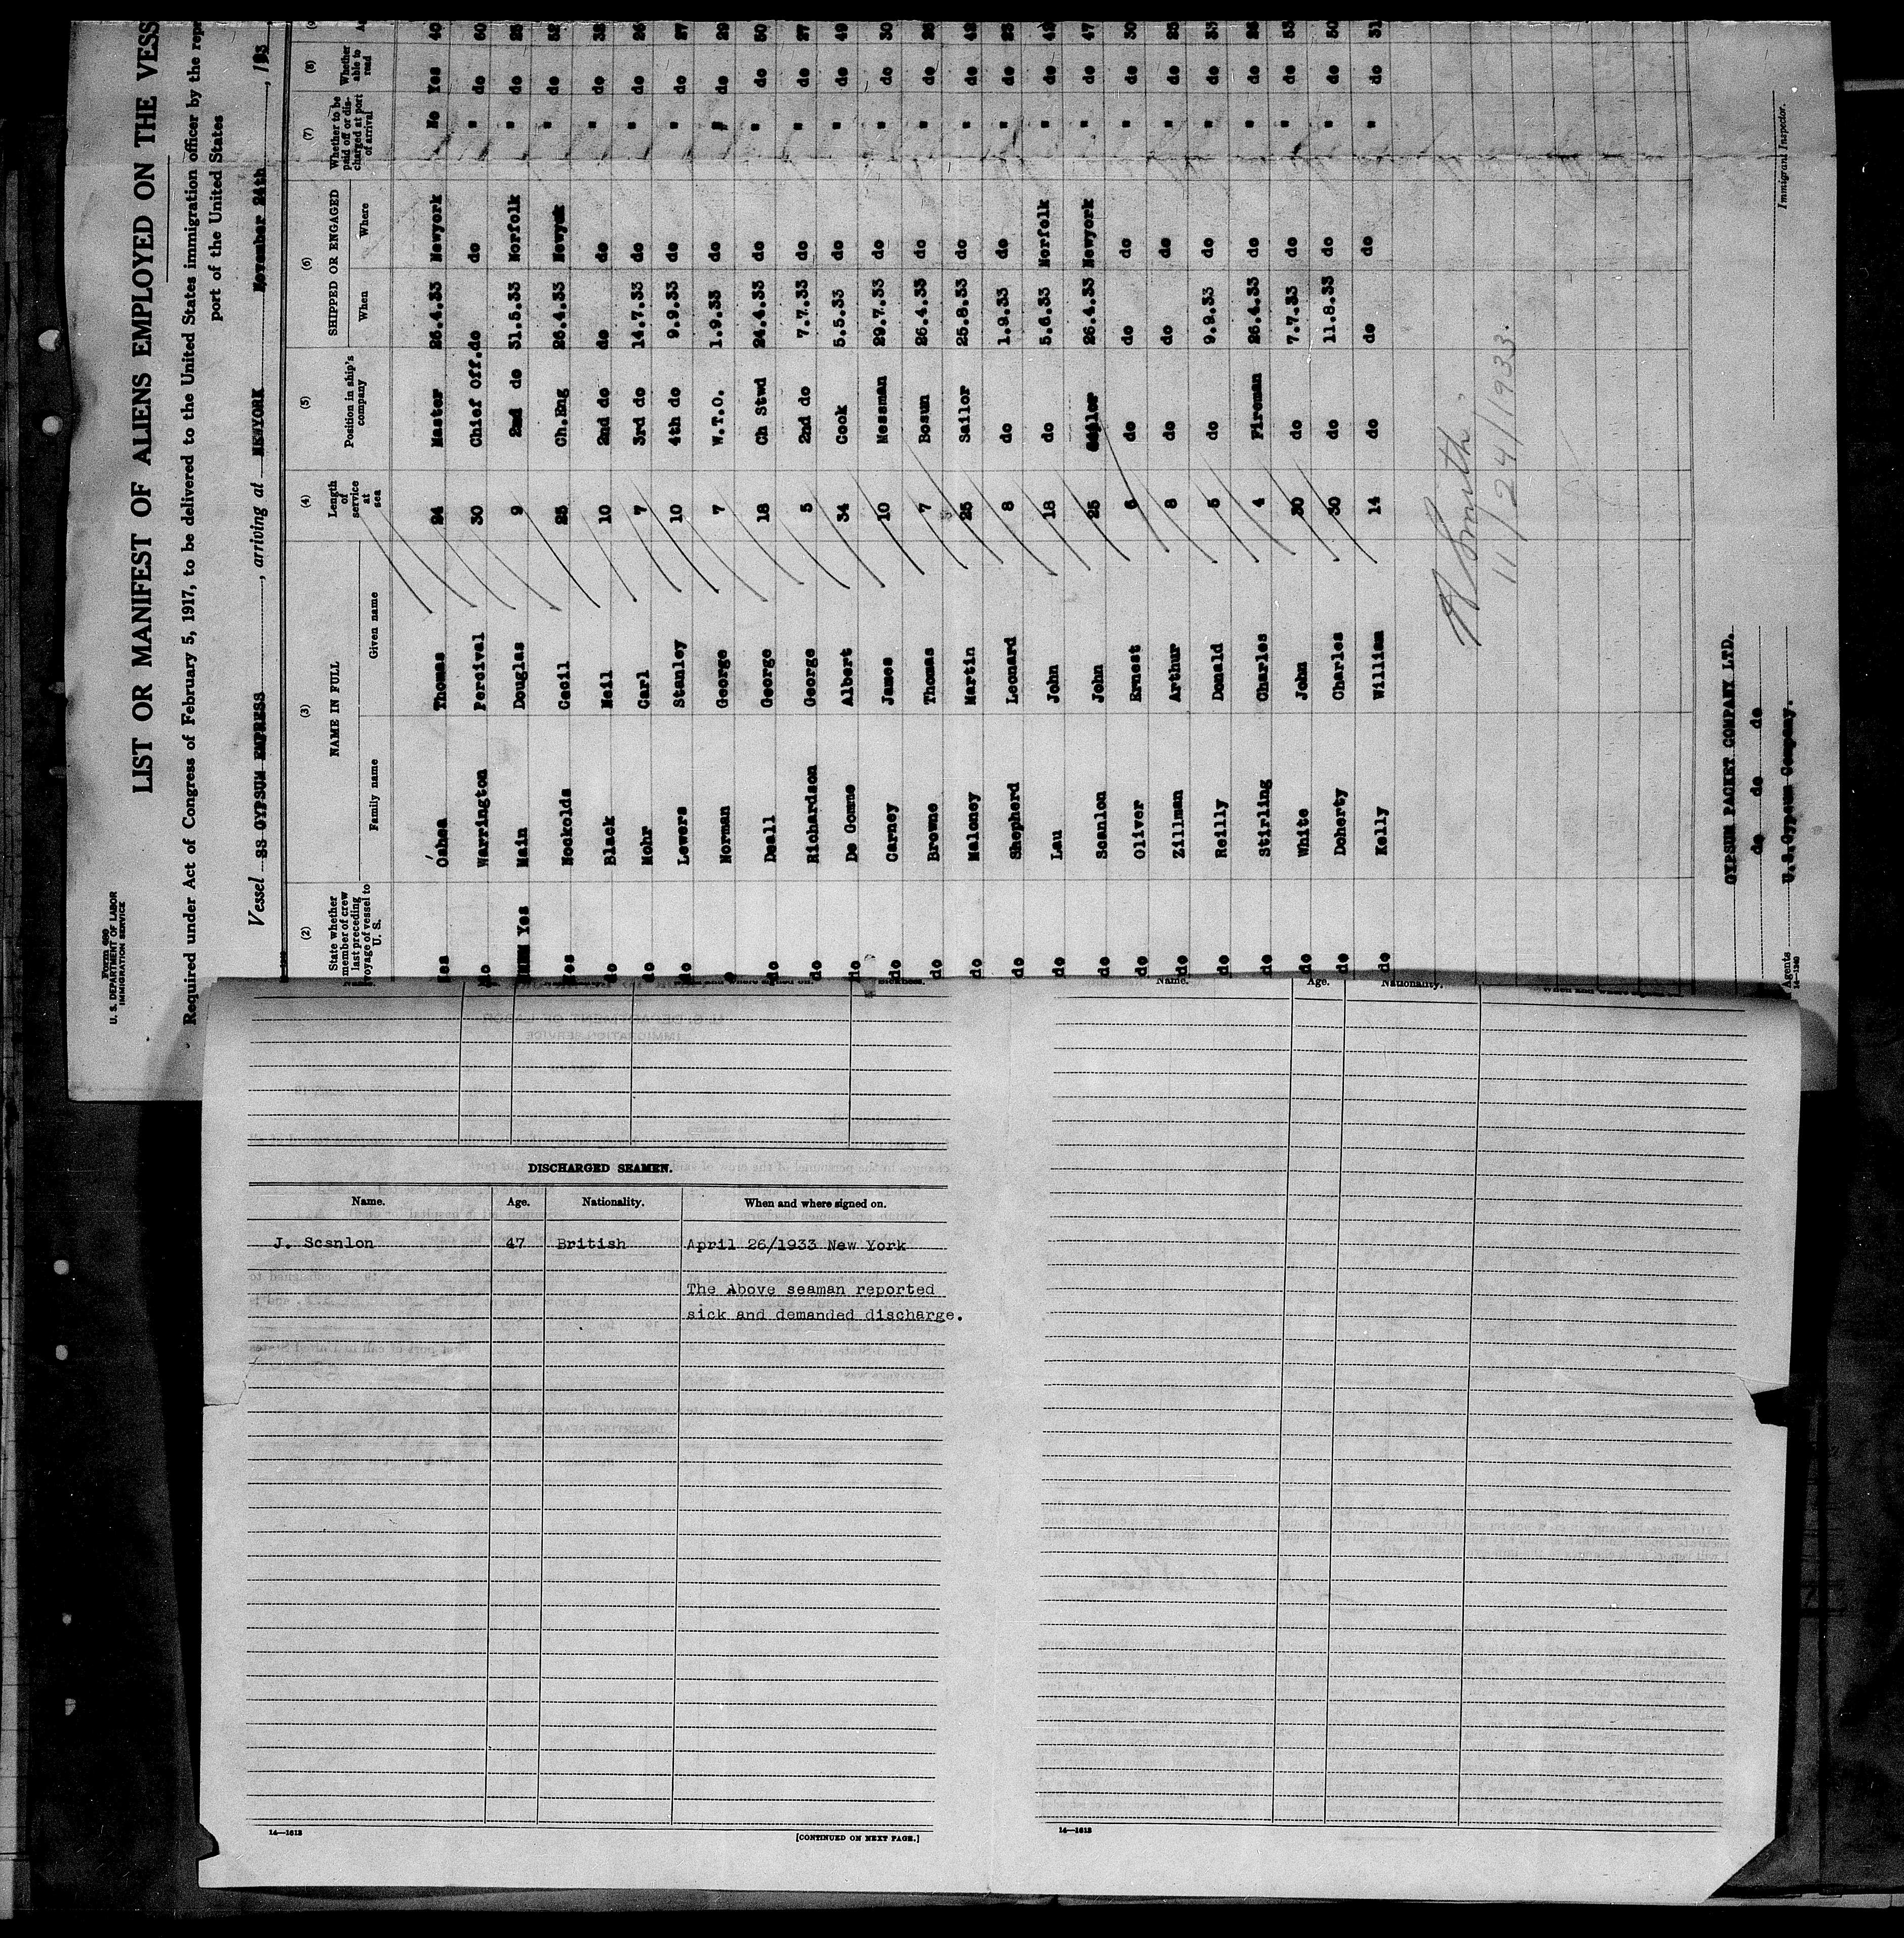 Form 680
U. S. DEPARTMENT OF LABOR
IMMIGRATION SERVICE
LIST OR MANIFEST OF ALIENS EMPLOYED ON THE VESS
Required under Act of Congress of February 5, 1917, to be delivered to the United States immigration officer by the repr
port of the United States
Vessel SS GYPSUM EMPRESS, arriving at NEWYORK November 24th, 193
(2) (3) (4) (5) (6) (7) (8)
State whether member of crew last preceding voyage of vessel to U. S. NAME IN FULL Family name Given name Length of service at sea Position in ship's company SHIPPED OR ENGAGED When Where Whether to be paid off or discharged at port of arrival Whether able to read
Yes O'shea Thomas 24 Master 26.4.33 Newyork No Yes 40
do Warrington Percival 30 Chief Off. do do " do 60
Yes Main Douglas 9 2nd do 31.5.33 Norfolk " do 25
Yes Nockolds Cecil 25 Ch.Eng 26.4.33 Newyork " do 52
do Black Neil 10 2nd do do do " do
do Mohr Carl 7 3rd do 14.7.33 do " do 26
do Lewers Stanley 10 4th do 9.9.33 do " do 27
Norman George 7 W.T.O. 1.9.33 do " do 29
do Deall George 18 Ch Stwd 24.4.33 do " do 50
do Richardson George 5 2nd do 7.7.33 do " do 27
do De Gomne Albert 34 Cook 5.5.33 do " do 49
do Carney James 10 Messman 29.7.33 do " do 30
do Browne Thomas 7 Bosun 26.4.33 do " do 26
do Maloney Martin 25 Sailor 25.8.33 do " do 42
do Shepherd Leonard 8 do 1.9.33 do " do 23
do Lau John 18 do 5.6.33 Norfolk " do 42
do Scanlon John 25 Sailor 26.4.33 Newyork " do 47
do Oliver Ernest 6 do do do " do 30
do Zillman Arthur 8 do do do " do 25
do Reilly Donald 5 do 9.9.33 do " do 33
do Stirling Charles 4 Fireman 26.4.33 do " do 26
do White John 30 do 7.7.33 do " do 53
do Doherty Charles 30 do 11.8.33 do " do 50
do Kelly William 14 do do do " do 31
Smith
11/24/1933.
GYPSUM PACKET COMPANY LTD.
do do do
Agents U.S.Gypsum Company.
14—1240
Immigrant Inspector.
Name. Age. Nationality.
DISCHARGED SEAMEN.
Name. Age. Nationality. When and where signed on.
J. Scsnlon 47 British April 26/1933 New York
The Above seaman reported
sick and demanded discharge.
14—1613
[CONTINUED ON NEXT PAGE.]
14—1613